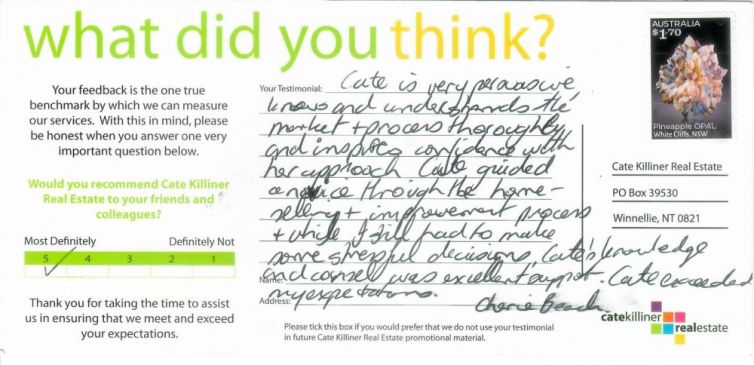 what did you think?
Your feedback is the one true
benchmark by which we can measure
our services. With this in mind, please
be honest when you answer one very
important question below.
Would you recommend Cate Killiner
Real Estate to your friends and
colleagues?
Most Definitely Definitely Not
5 4 3 2 1
Thank you for taking the time to assist
us in ensuring that we meet and exceed
your expectations.
Your Testimonial: Cate is very persuasive
knows and understands the
market + process thoroughly
and inspires confidence with
her approach Cate guided
a novice through the home-
selling + improvement process
+ while I still had to make
some stressful decisions, Cate's knowledge
and counsel was excellent support. Cate exceeded
Name:
my expectations.
Address:
Cherie Beach
Please tick this box if you would prefer that we do not use your testimonial
in future Cate Killiner Real Estate promotional material.
AUSTRALIA
$1.70
Pineapple OPAL
White Cliffs, NSW
Cate Killiner Real Estate
PO Box 39530
Winnellie, NT 0821
catekilliner
realestate